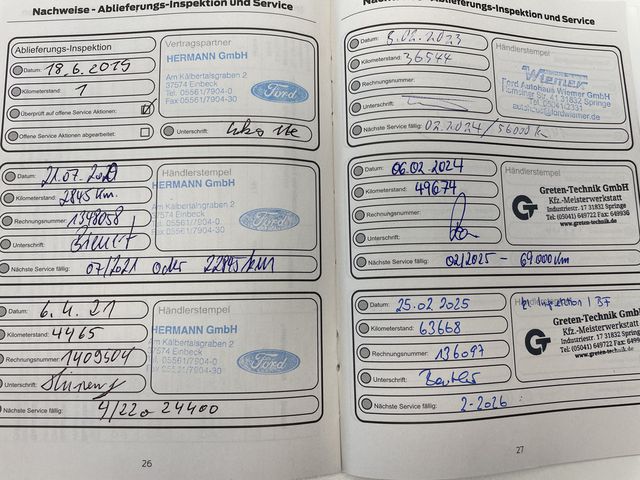 Nachweise - Ablieferungs-Inspektion und Service
Ablieferungs-Inspektion
Datum: 18.6.2019
Kilometerstand: 1
Überprüft auf offene Service Aktionen:
Offene Service Aktionen abgearbeitet:
Vertragspartner
HERMANN GmbH
Am Kälbertalsgraben 2
37574 Einbeck
Tel. 05561/7904-0
Fax 05561/7904-30
Ford
Unterschrift:
Datum: 21.07.2020
Kilometerstand: 2845 Km.
Rechnungsnummer: 1348058
Unterschrift:
Nächste Service fällig: 07/2021 oder 22845/KM
Händlerstempel
HERMANN GmbH
Am Kälbertalsgraben 2
37574 Einbeck
Tel. 05561/7904-0
Fax 05561/7904-30
Ford
Datum: 6.4.21
Kilometerstand: 4465
Rechnungsnummer: 1409504
Unterschrift:
Nächste Service fällig: 4/22 o 24400
Händlerstempel
HERMANN GmbH
Am Kälbertalsgraben 2
37574 Einbeck
Tel. 05561/7904-0
Fax 05561/7904-30
Ford
26
Nachweise - Ablieferungs-Inspektion und Service
Datum: 8.02.2023
Kilometerstand: 36544
Rechnungsnummer:
Unterschrift:
Nächste Service fällig: 02.2024/56000 k
Händlerstempel
Wiemer
Ford Autohaus Wiemer GmbH
31832 Springe
Datum: 06.02.2024
Kilometerstand: 49674
Rechnungsnummer:
Unterschrift:
Nächste Service fällig: 02/2025 - 69.000 km
Händlerstempel
Greten-Technik GmbH
Kfz.-Meisterwerkstatt
Industriestr. 17 31832 Springe
Tel: (05041) 649722 Fax: 649936
www.greten-technik.de
Datum: 25.02.2025
Kilometerstand: 63668
Rechnungsnummer: 136097
Unterschrift:
Nächste Service fällig: 2-2026
Greten-Technik GmbH
Kfz.-Meisterwerkstatt
Industriestr. 17 31832 Springe
Tel: (05041) 649722 Fax: 6499
www.greten-technik.de
27